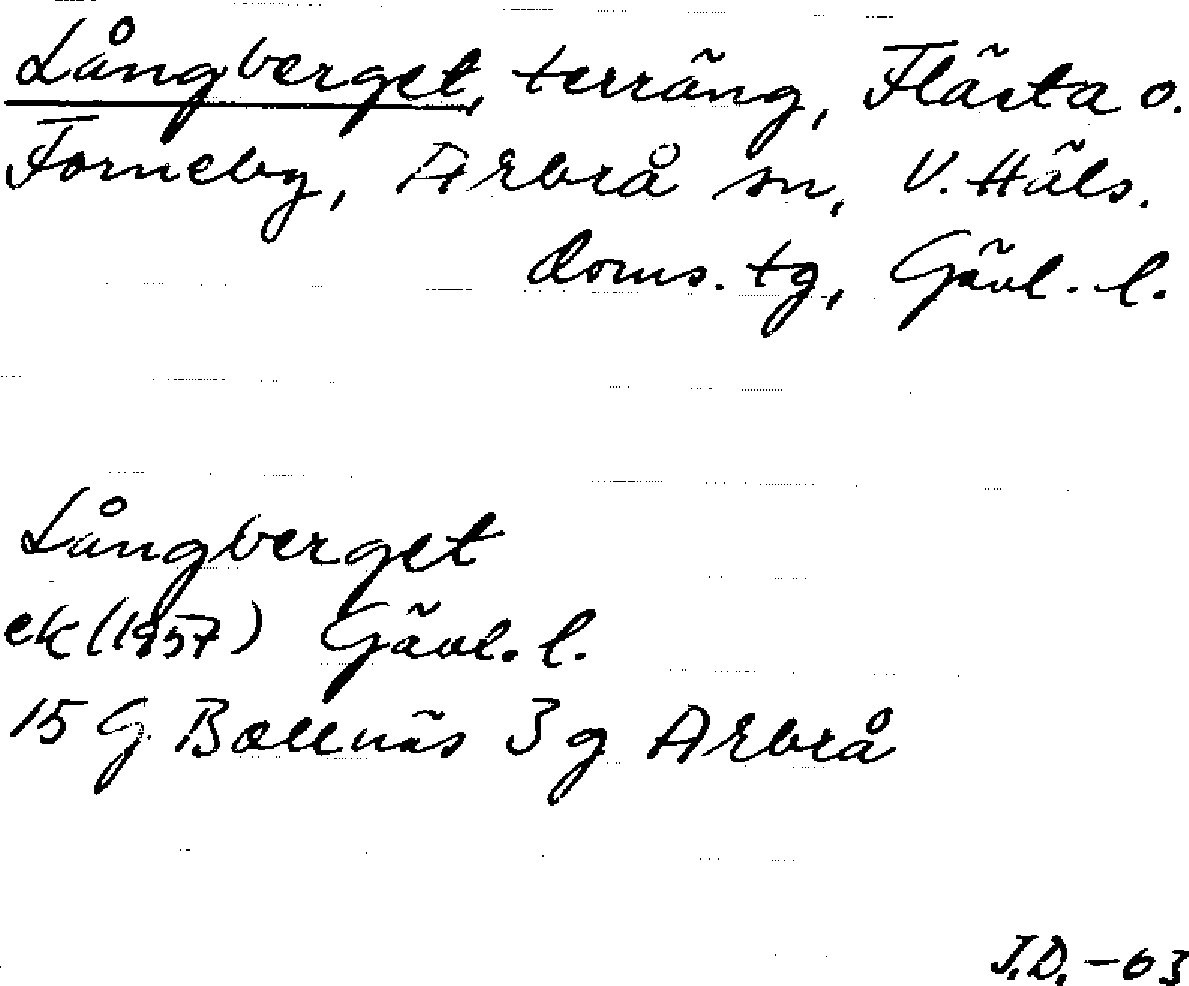 Långberget, terräng, Flästa o.
Forneby, Arbrå sn, V. Häls.
doms. tg, Gävl. l.
Långberget
ek (1957) Gävl. l.
15 G Bollnäs 3 g Arbrå
J.D. - 63